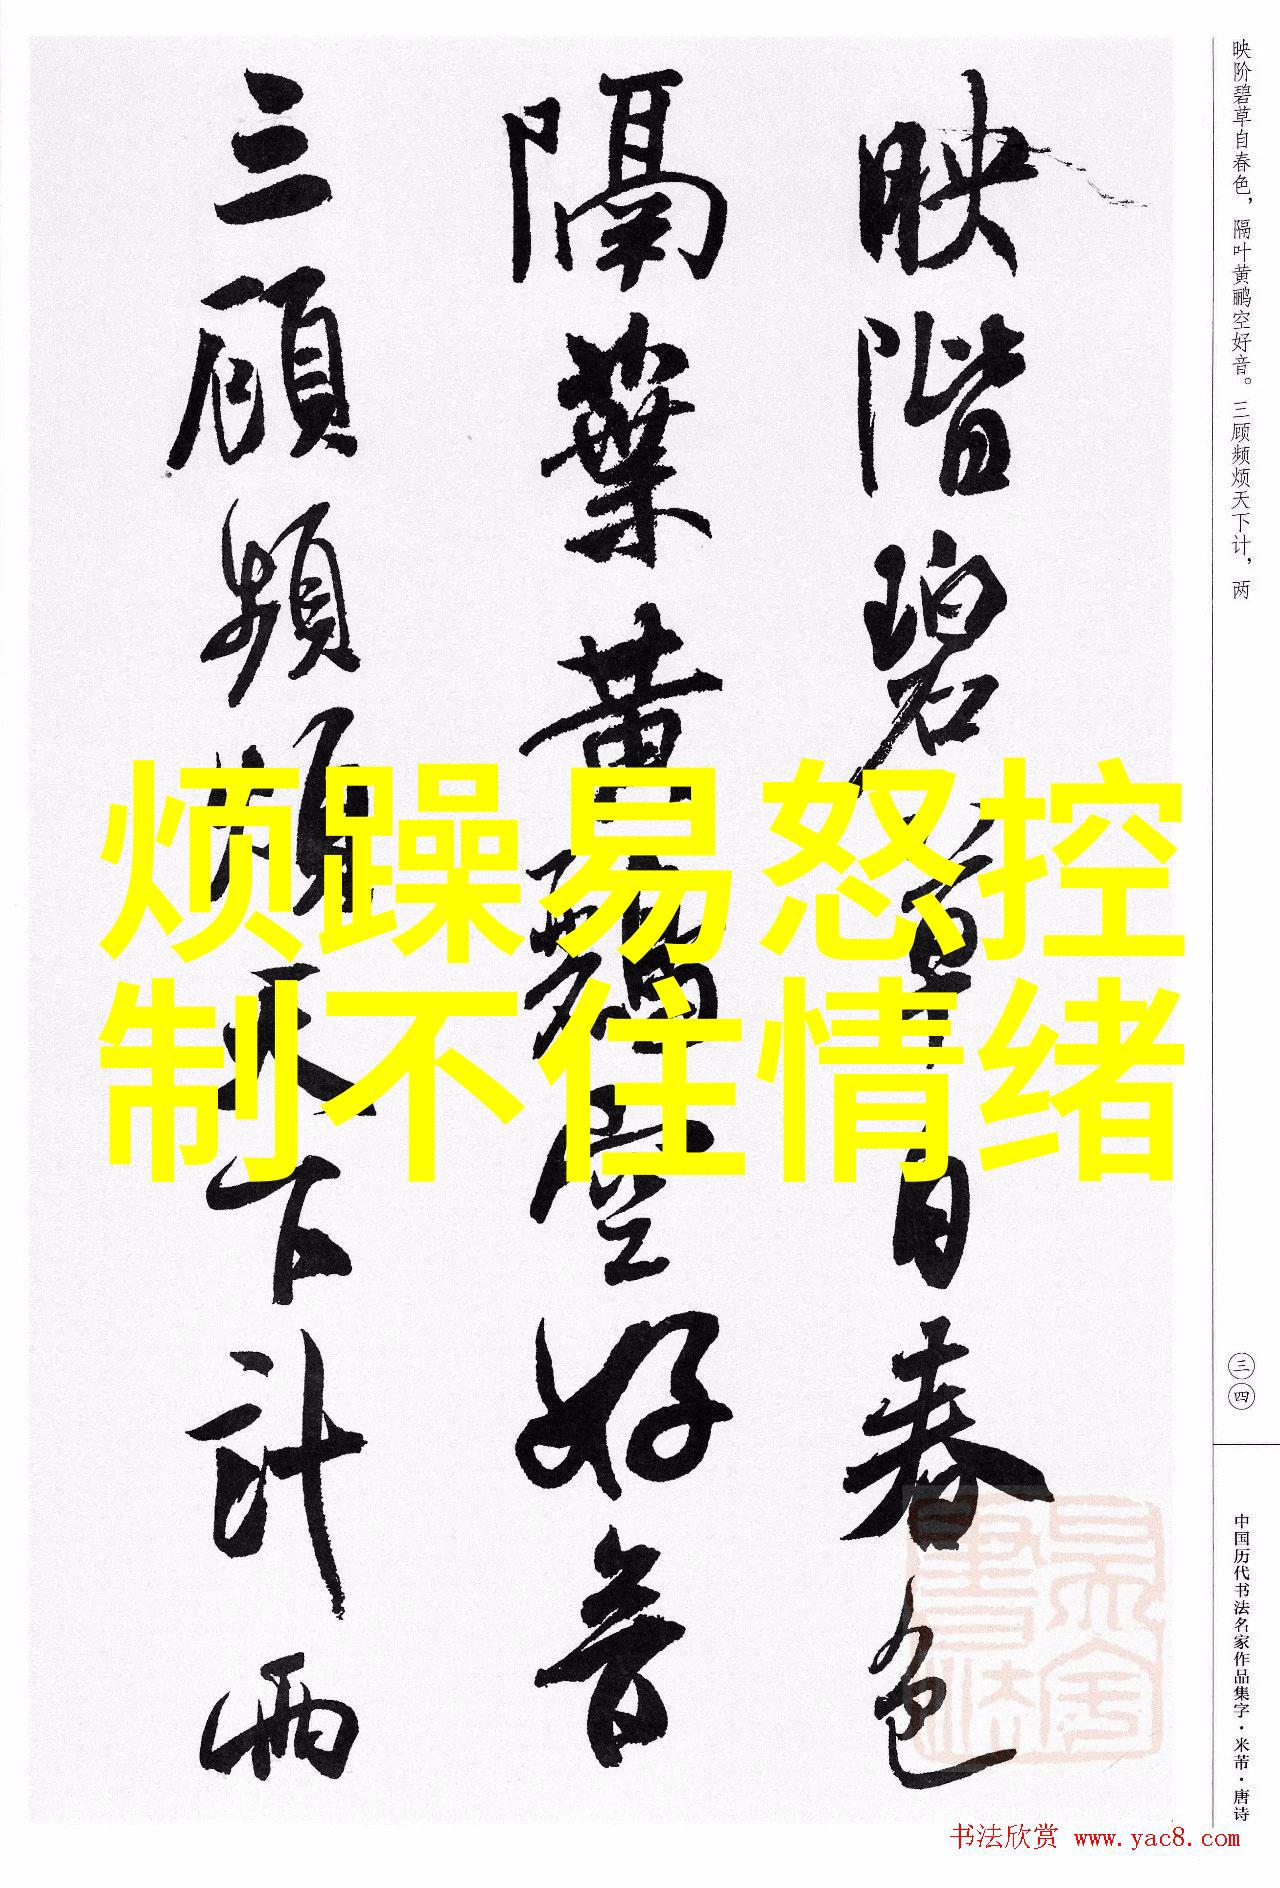 映階碧草自春色
隔葉黄鸝空好音
三顧頻煩天下計兩
烦躁易怒控
制不住情绪
映阶碧草自春色，隔叶黄鹂空好音。三顾频烦天下计，两
三四
中国历代书法名家作品集字·米芾·唐诗
书法欣赏 www.yac8.com